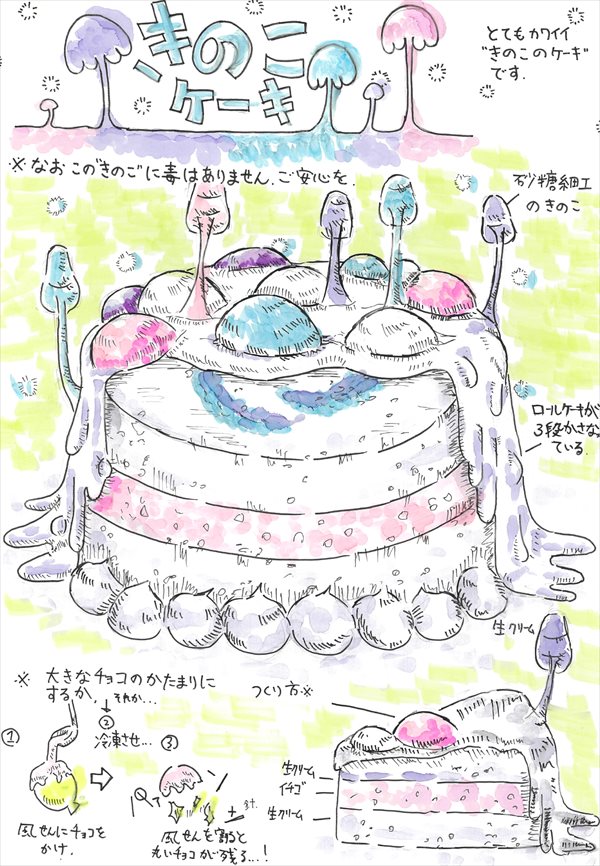 きのこ
ケーキ
とてもカワイイ
"きのこのケーキ"
です.
※なおこの"きのこ"に毒はありません.ご安心を.
砂糖細工
のきのこ
ロールケーキが
3段かさなっ
ている.
生クリーム
※ 大きなチョコのかたまりに
するか, それか…
つくり方※
①
②
冷凍させ…
③
風せんにチョコを
かけ.
風せんを割ると
丸いチョコが残る…!
生クリーム
イチゴ
生クリーム